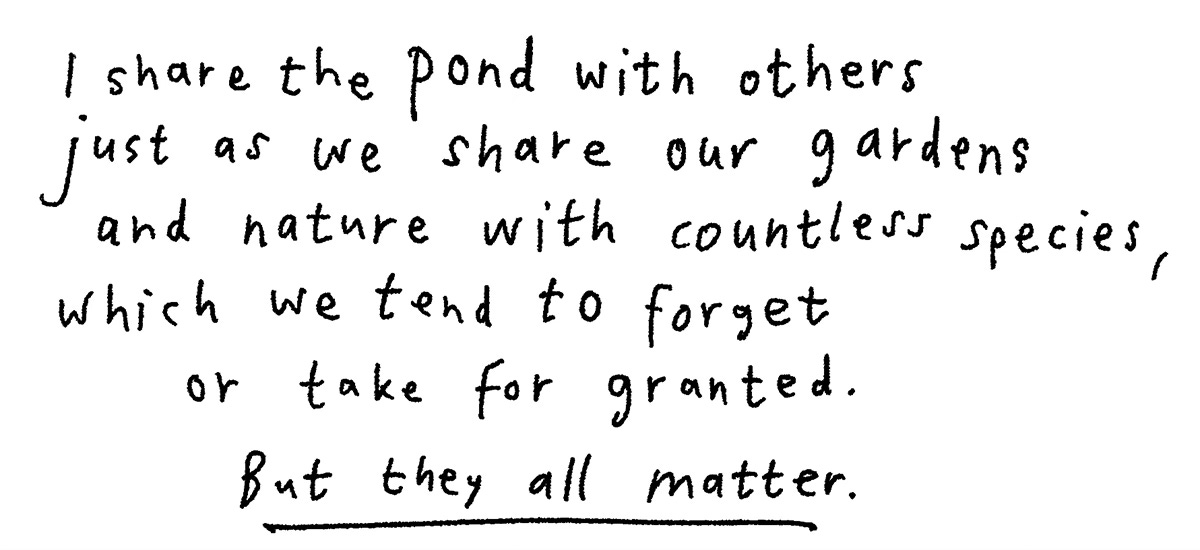 I share the pond with others
just as we share our gardens
and nature with countless species,
which we tend to forget
or take for granted.
But they all matter.